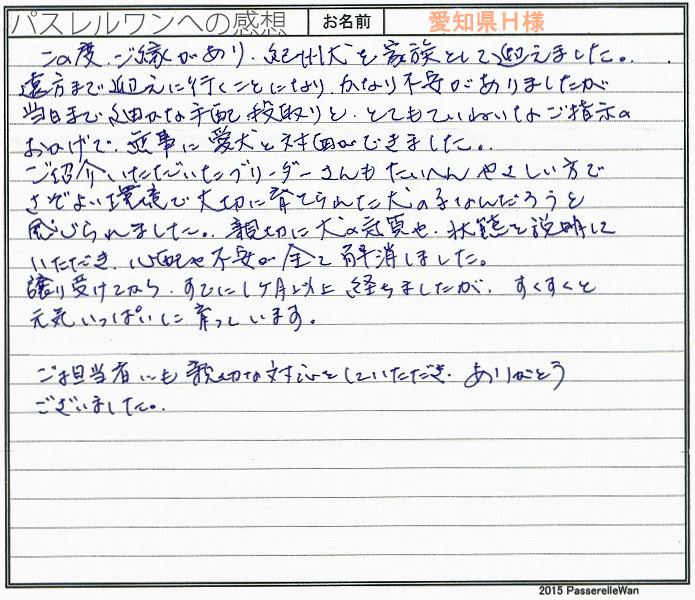 パスレルワンへの感想 お名前 愛知県H様
この度、ご縁があり、紀州犬を家族として迎えました。
遠方まで迎えに行くことになり、かなり不安がありましたが
当日まで細かな手配、段取りと、とてもていねいなご指示の
おかげで、無事に愛犬と対面ができました。
ご紹介いただいたブリーダーさんもたいへんやさしい方で
さぞよい環境で大切に育てられた犬の子なんだろうと
感じられました。親切に犬の気質や、状態を説明して
いただき、心配や不安が全て解消しました。
譲り受けてから、すでに1ケ月以上経ちましたが、すくすくと
元気いっぱいに育っています。
ご担当者にも親切な対応をしていただき、ありがとう
ございました。
2015 PasserelleWan